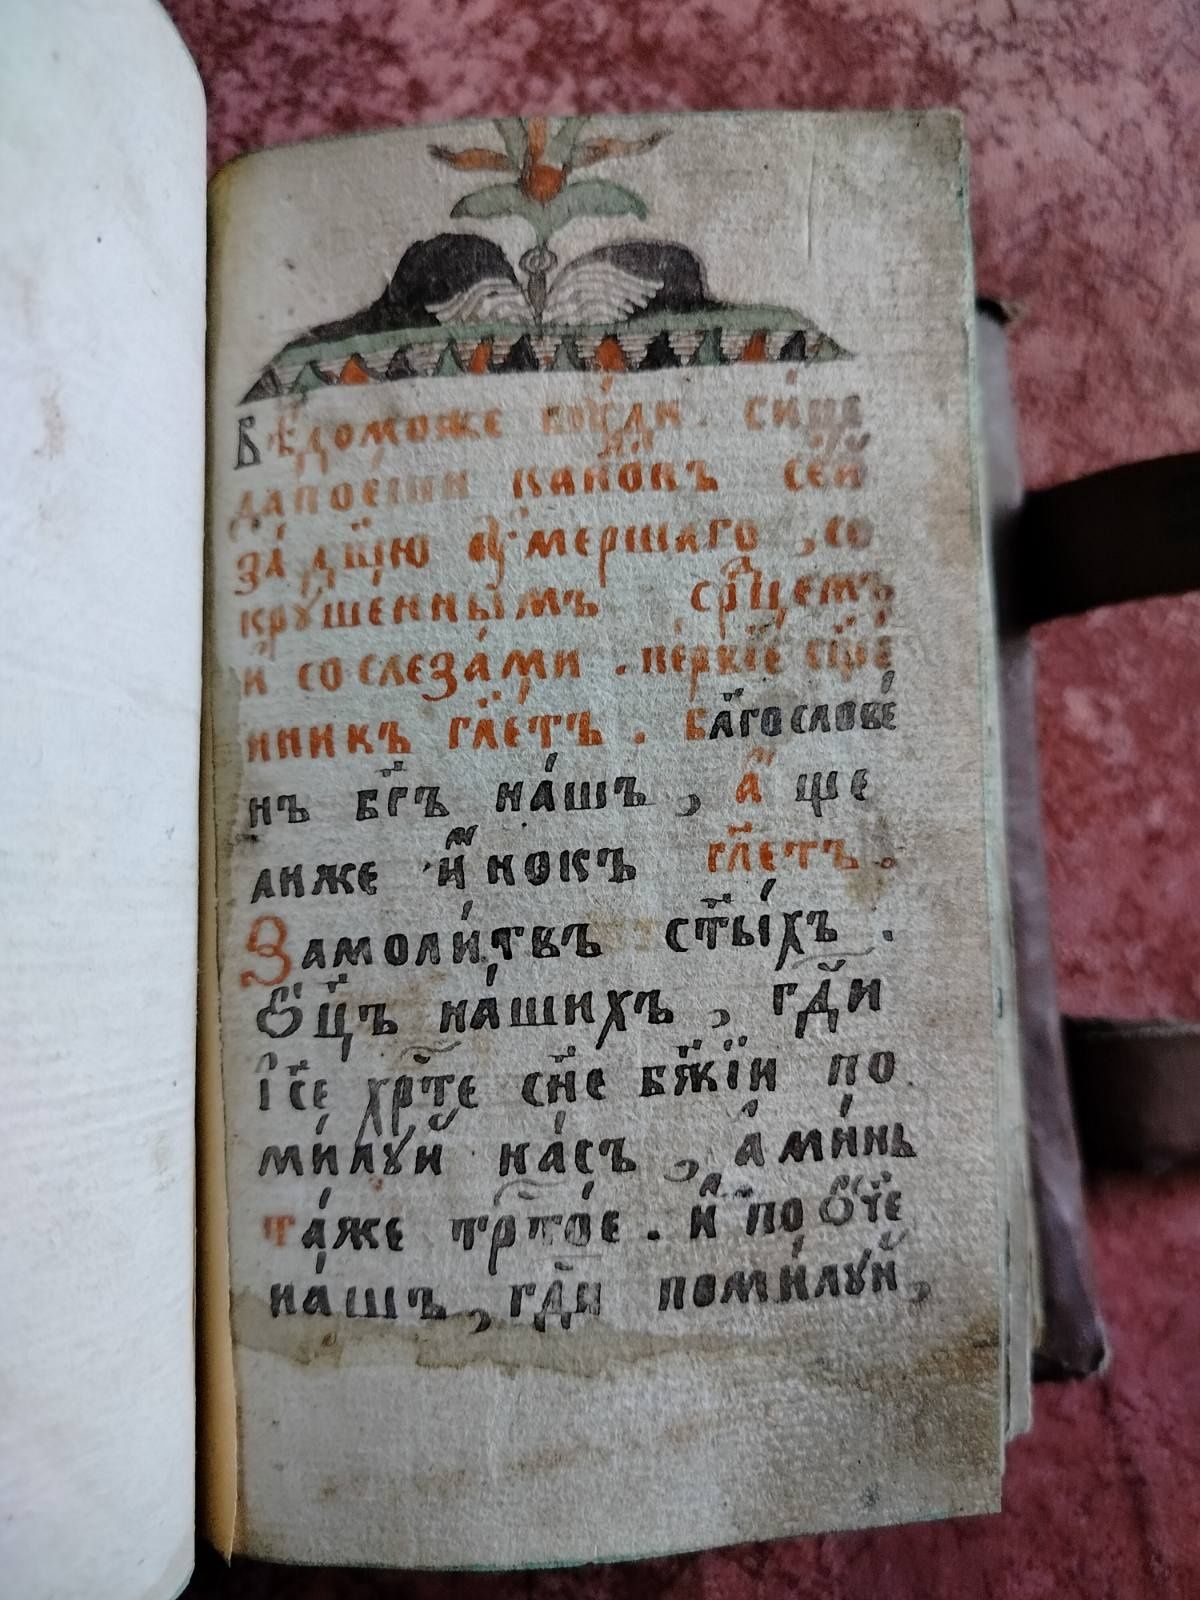 Вѣ́доможе бꙋ́ди. си́це
дапоеши канѡ́нъ сеи̑
за́ дш҃ю ᲂу҆мершаго, со
крꙋ́шеннымъ срⷣцемъ
и сослеза́ми. первїе сщ҃е
нникъ гл҃етъ. бл҃гослове́
нъ бг҃ъ на́шъ, а҆ ще
лиже и҆́нокъ гл҃етъ.
Замоли́твъ ст҃ы́хъ.
Ѿц҃ъ на́шихъ, гдⷭ҇и
І҆с҃е хрⷭ҇те сн҃е бж҃їи по
ми́лꙋй на́съ, а҆ми́нь
та́же трⷭ҇то́е. и҆ по ѿ҃че
на́шъ, гдⷭ҇и поми́лꙋй,